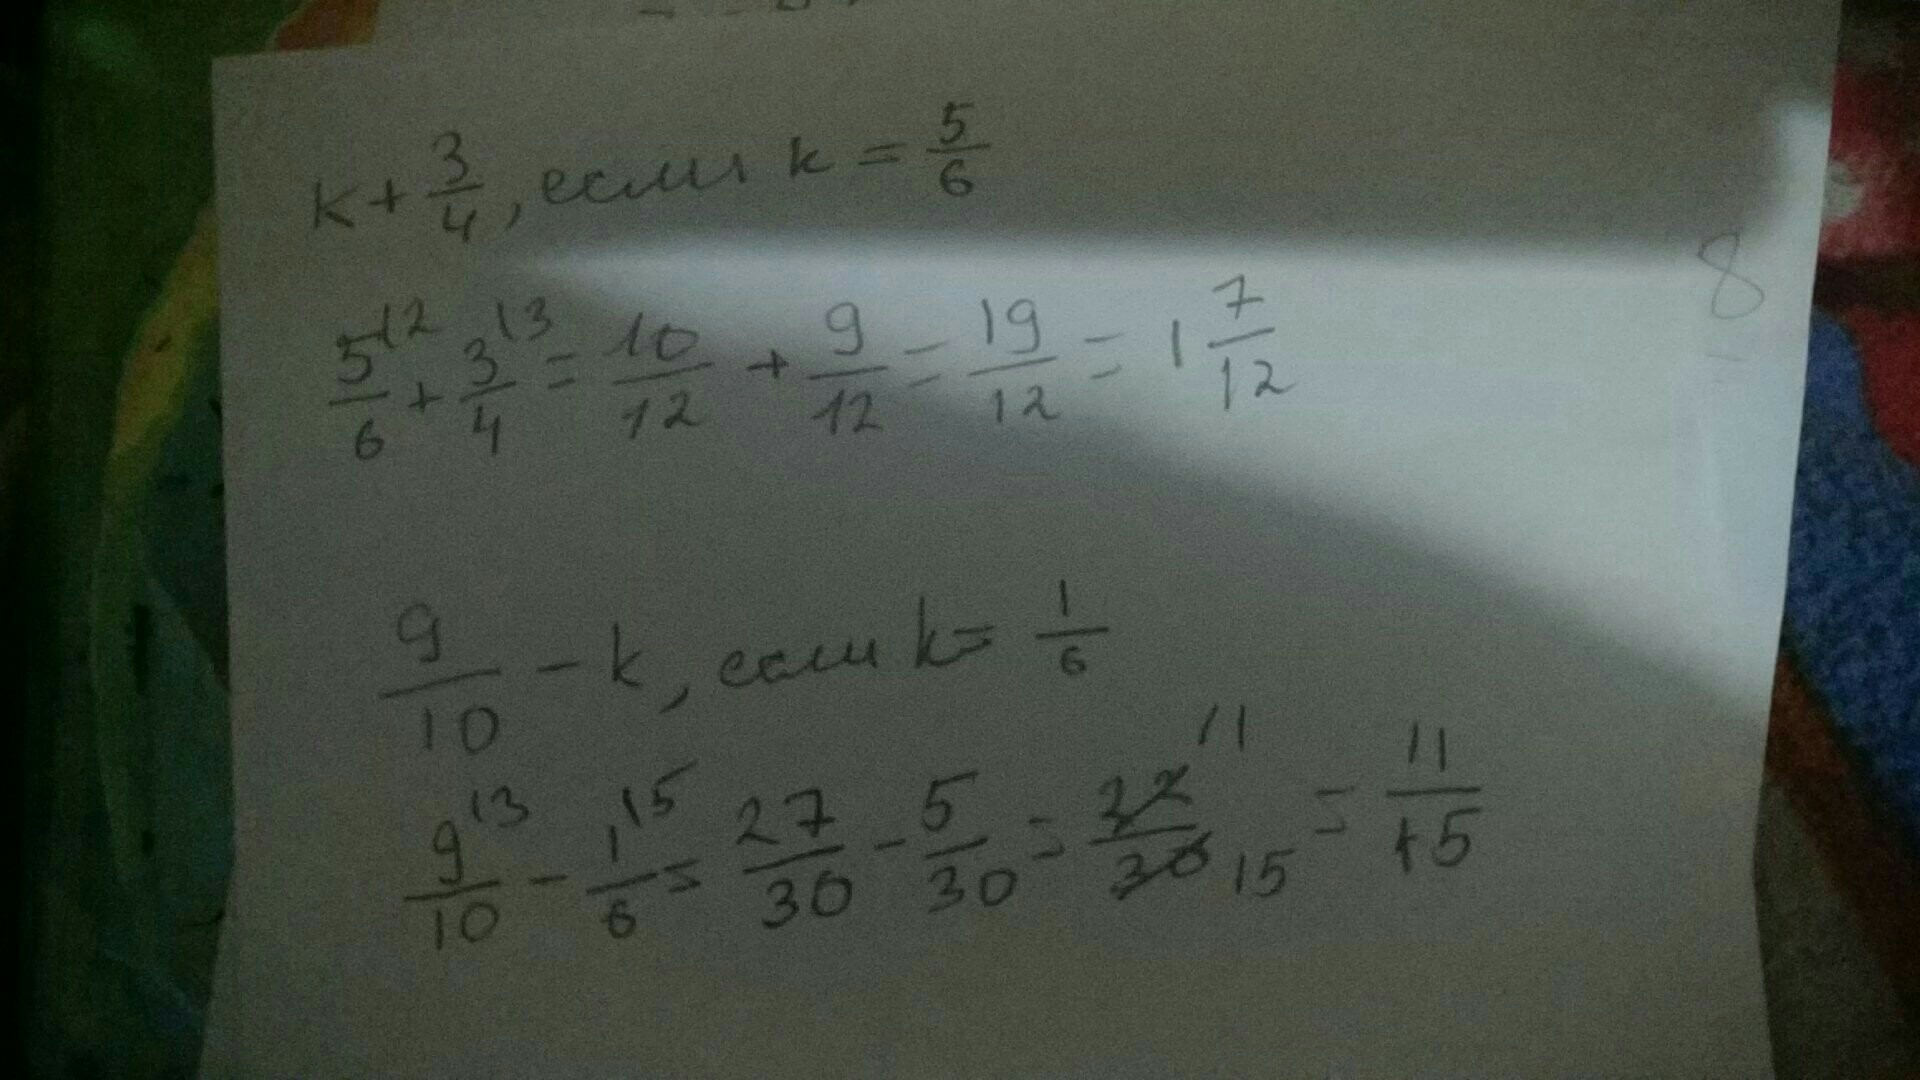 k + 3/4, если k = 5/6
5/6 \2 + 3/4 \3 = 10/12 + 9/12 = 19/12 = 1 7/12
9/10 - k, если k = 1/6
9/10 \3 - 1/6 \5 = 27/30 - 5/30 = 22/30 11 15 = 11/15
8